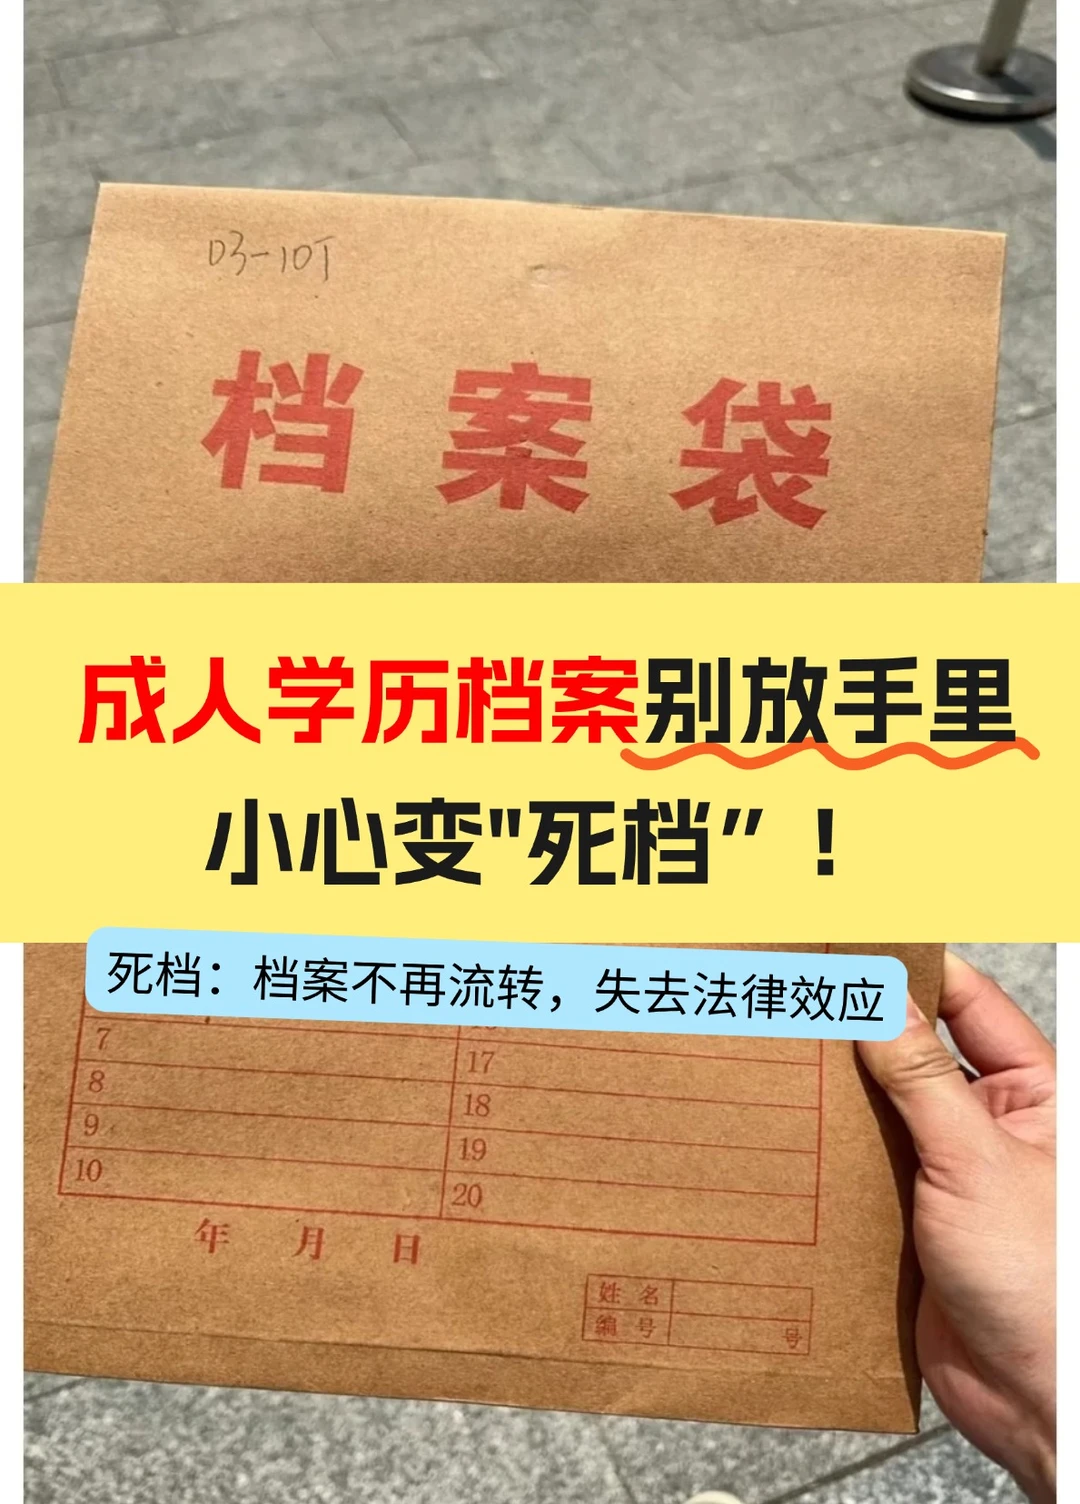 D3-10T
档案袋
成人学历档案别放手里
小心变"死档”！
死档：档案不再流转，失去法律效应
7
17
8
18
9
19
10
20
年 月 日
姓名
编号 号